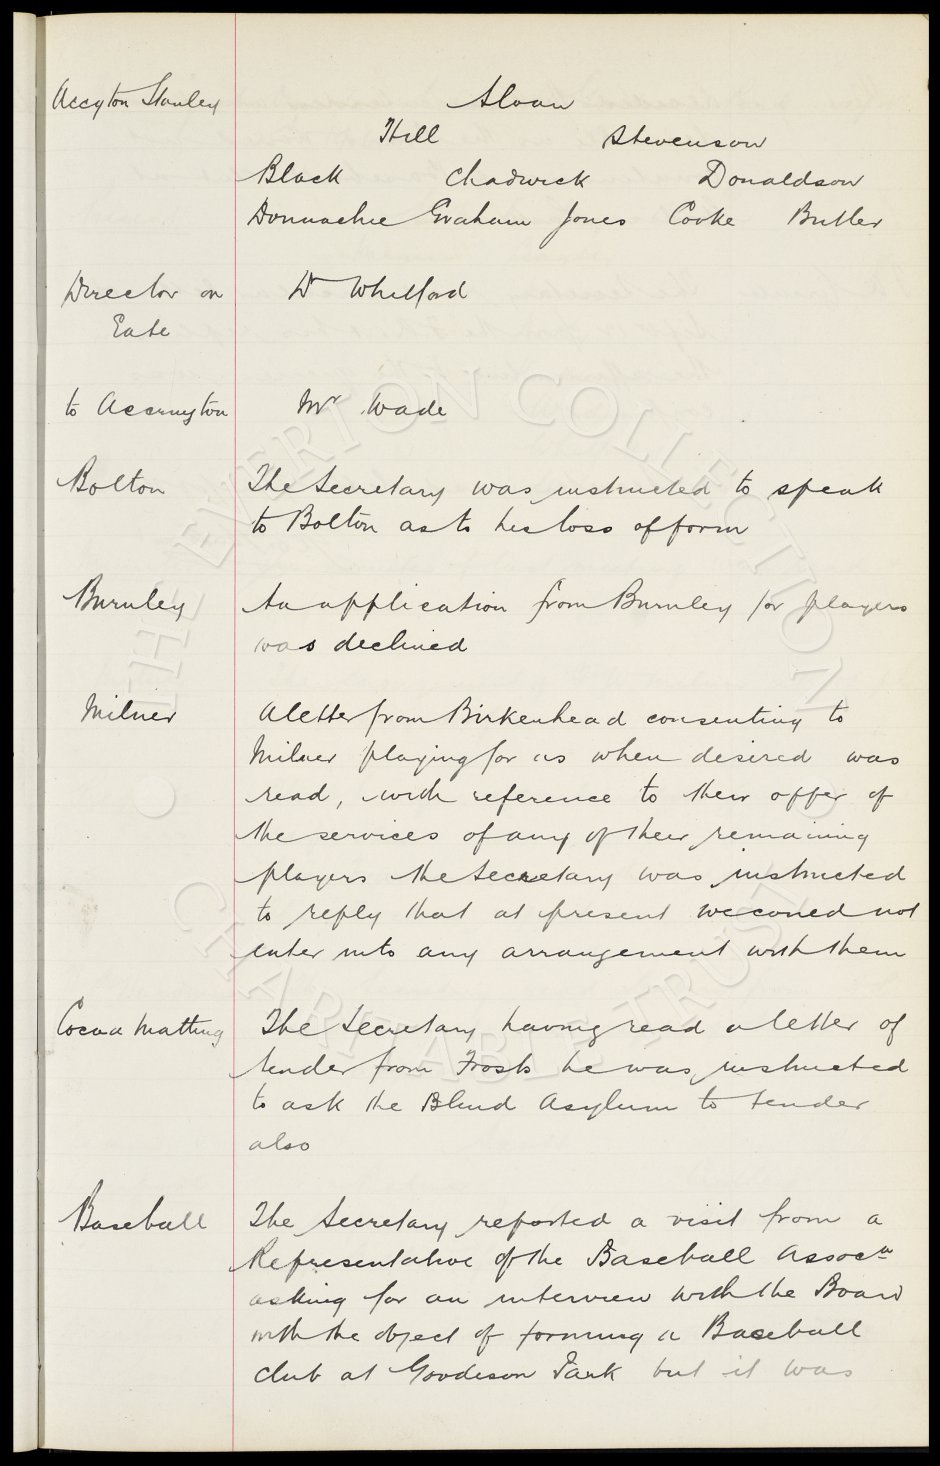 Accyton Stanley
Sloan
Hill Stevenson
Black Chadwick Donaldson
Donnachie Graham Jones Cooke Butler
Director on Gate
Dr Whitford
to Accrington Mr Wade
Bolton The Secretary was instructed to speak
to Bolton as to his loss of form
Burnley An application from Burnley for players
was declined
Milner A letter from Birkenhead consenting to
Milner playing for us when desired was
read, with reference to their offer of
the services of any of their remaining
players the Secretary was instructed
to reply that at present we could not
enter into any arrangement with them
Cocoa Matting The Secretary having read a letter of
tender from Frosts he was instructed
to ask the Blind Asylum to tender
also
Baseball The Secretary reported a visit from a
Representative of the Baseball Assocn
asking for an interview with the Board
with the object of forming a Baseball
club at Goodison Park but it was
THE EVERTON COLLECTION
CHARITABLE TRUST